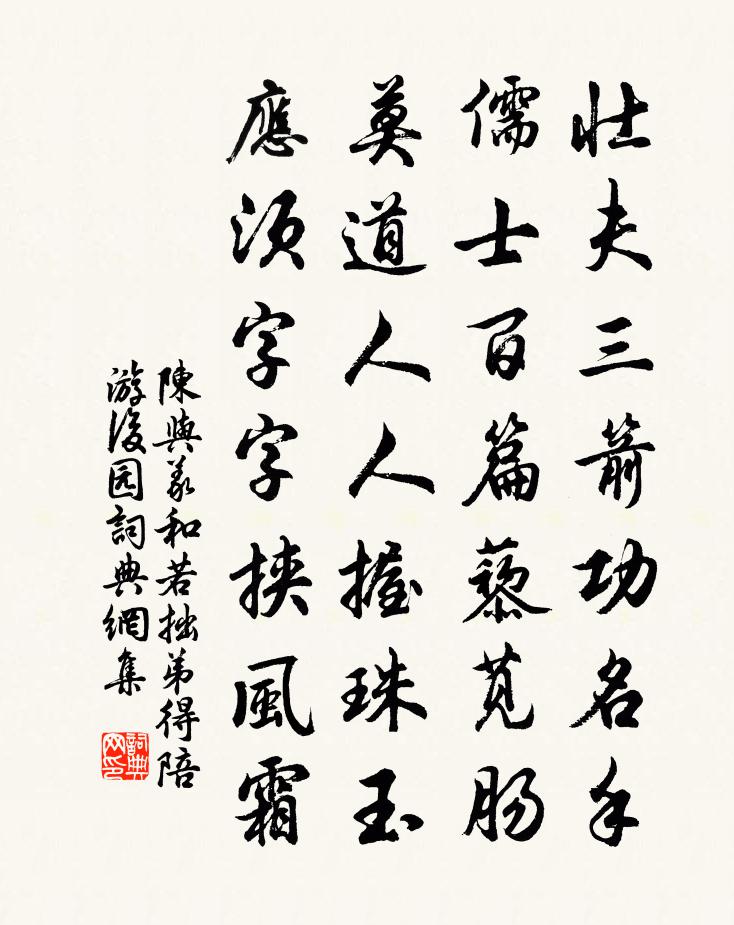 壮夫三箭功名手
儒士百篇藜莧肠
莫道人人握珠玉
應須字字挾風霜
陳與義和若拙弟得陪
游後园詞典網集
詞典网印